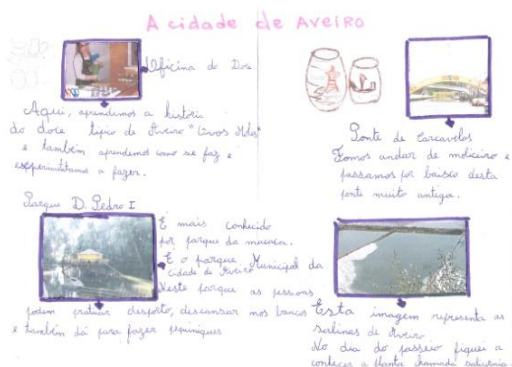 A cidade de Aveiro
Oficina do Doce
Aqui, aprendemos a história
do doce típico de Aveiro "Ovos Moles"
e também aprendemos como se faz e
experimentamos a fazer.
Ponte de Carcavelos
Fomos andar de moliceiro e
passamos por baixo desta
ponte muito antiga.
Parque D. Pedro I
É mais conhecido
por parque da macaca.
É o parque Municipal da
cidade de Aveiro
Neste parque as pessoas
podem praticar desporto, descansar nos bancos
e também dá para fazer piqueniques
Esta imagem representa as
salinas de Aveiro
No dia do passeio fiquei a
conhecer a planta chamada salicórnia